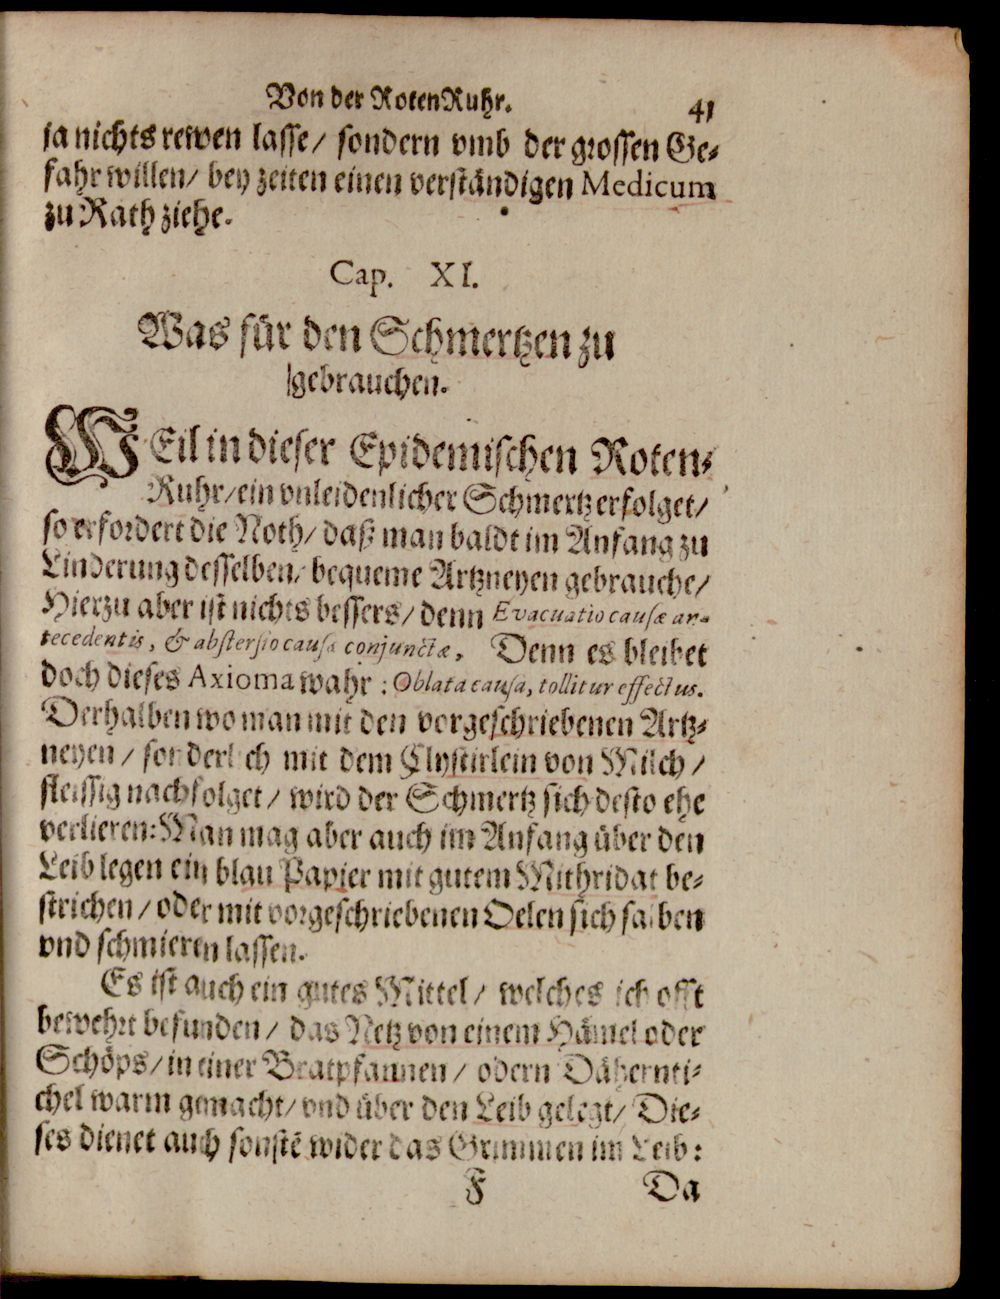 Von der Roten Ruhr. 41
ja nichts rewen lasse/ sondern vmb der grossen Ge-
fahr willen/ bey zeiten einen verständigen Medicum
zu Rath ziehe.
Cap. XI.
Was für den Schmertzen zu
gebrauchen.
WEil in dieser Epidemischen Roten-
Ruhr/ ein vnleidenlicher Schmertz erfolget/
so erfordert die Noth/ daß man baldt im Anfang zu
Linderung desselben/ bequeme Artzneyen gebrauche/
Hierzu aber ist nichts bessers/ denn Evacuatio causæ an-
tecedentis, & abstersio causæ conjunctæ, Denn es bleibet
doch dieses Axioma wahr: Oblata causa, tollitur effectus.
Derhalben wo man mit den vorgeschriebenen Artz-
neyen/ sonderlich mit dem Clystirlein von Milch/
fleissig nachfolget/ wird der Schmertz sich desto ehe
verlieren: Man mag aber auch im Anfang über den
Leib legen ein blau Papier mit gutem Mithridat be-
strichen/ oder mit vorgeschriebenen Oelen sich salben
vnd schmieren lassen.
Es ist auch ein gutes Mittel/ welches ich offt
bewehrt befunden/ das Netz von einem Hämel oder
Schöps/ in einer Bratpfannen/ odern Dähernti-
chel warm gemacht/ vnd über den Leib gelegt/ Die-
ses dienet auch sonstē wider das Grimmen im Leib:
F Da